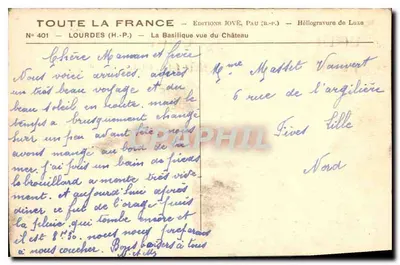 TOUTE LA FRANCE — EDITIONS JOVÉ, PAU (B.-P.) — Héliogravure de Luxe
N° 401 - LOURDES (H.-P.) - La Basilique vue du Château
Chère Maman et frère
Nous voici arrivées, après
un très beau voyage et du
beau soleil en route, mais le
temps a brusquement changé
hier un peu avant nous
avons mangé au bord de la
mer, j'ai pris un bain de pieds
le brouillard a monté très vite-
ment. Et aujourd'hui après
dîner ce fut de l'orage puis
la pluie qui tombe encore et
il est 8h30. nous nous préparons
à nous coucher. Bons baisers à tous
Mme Masset Vanvert
6 rue de l'argilière
Fives Lille
Nord